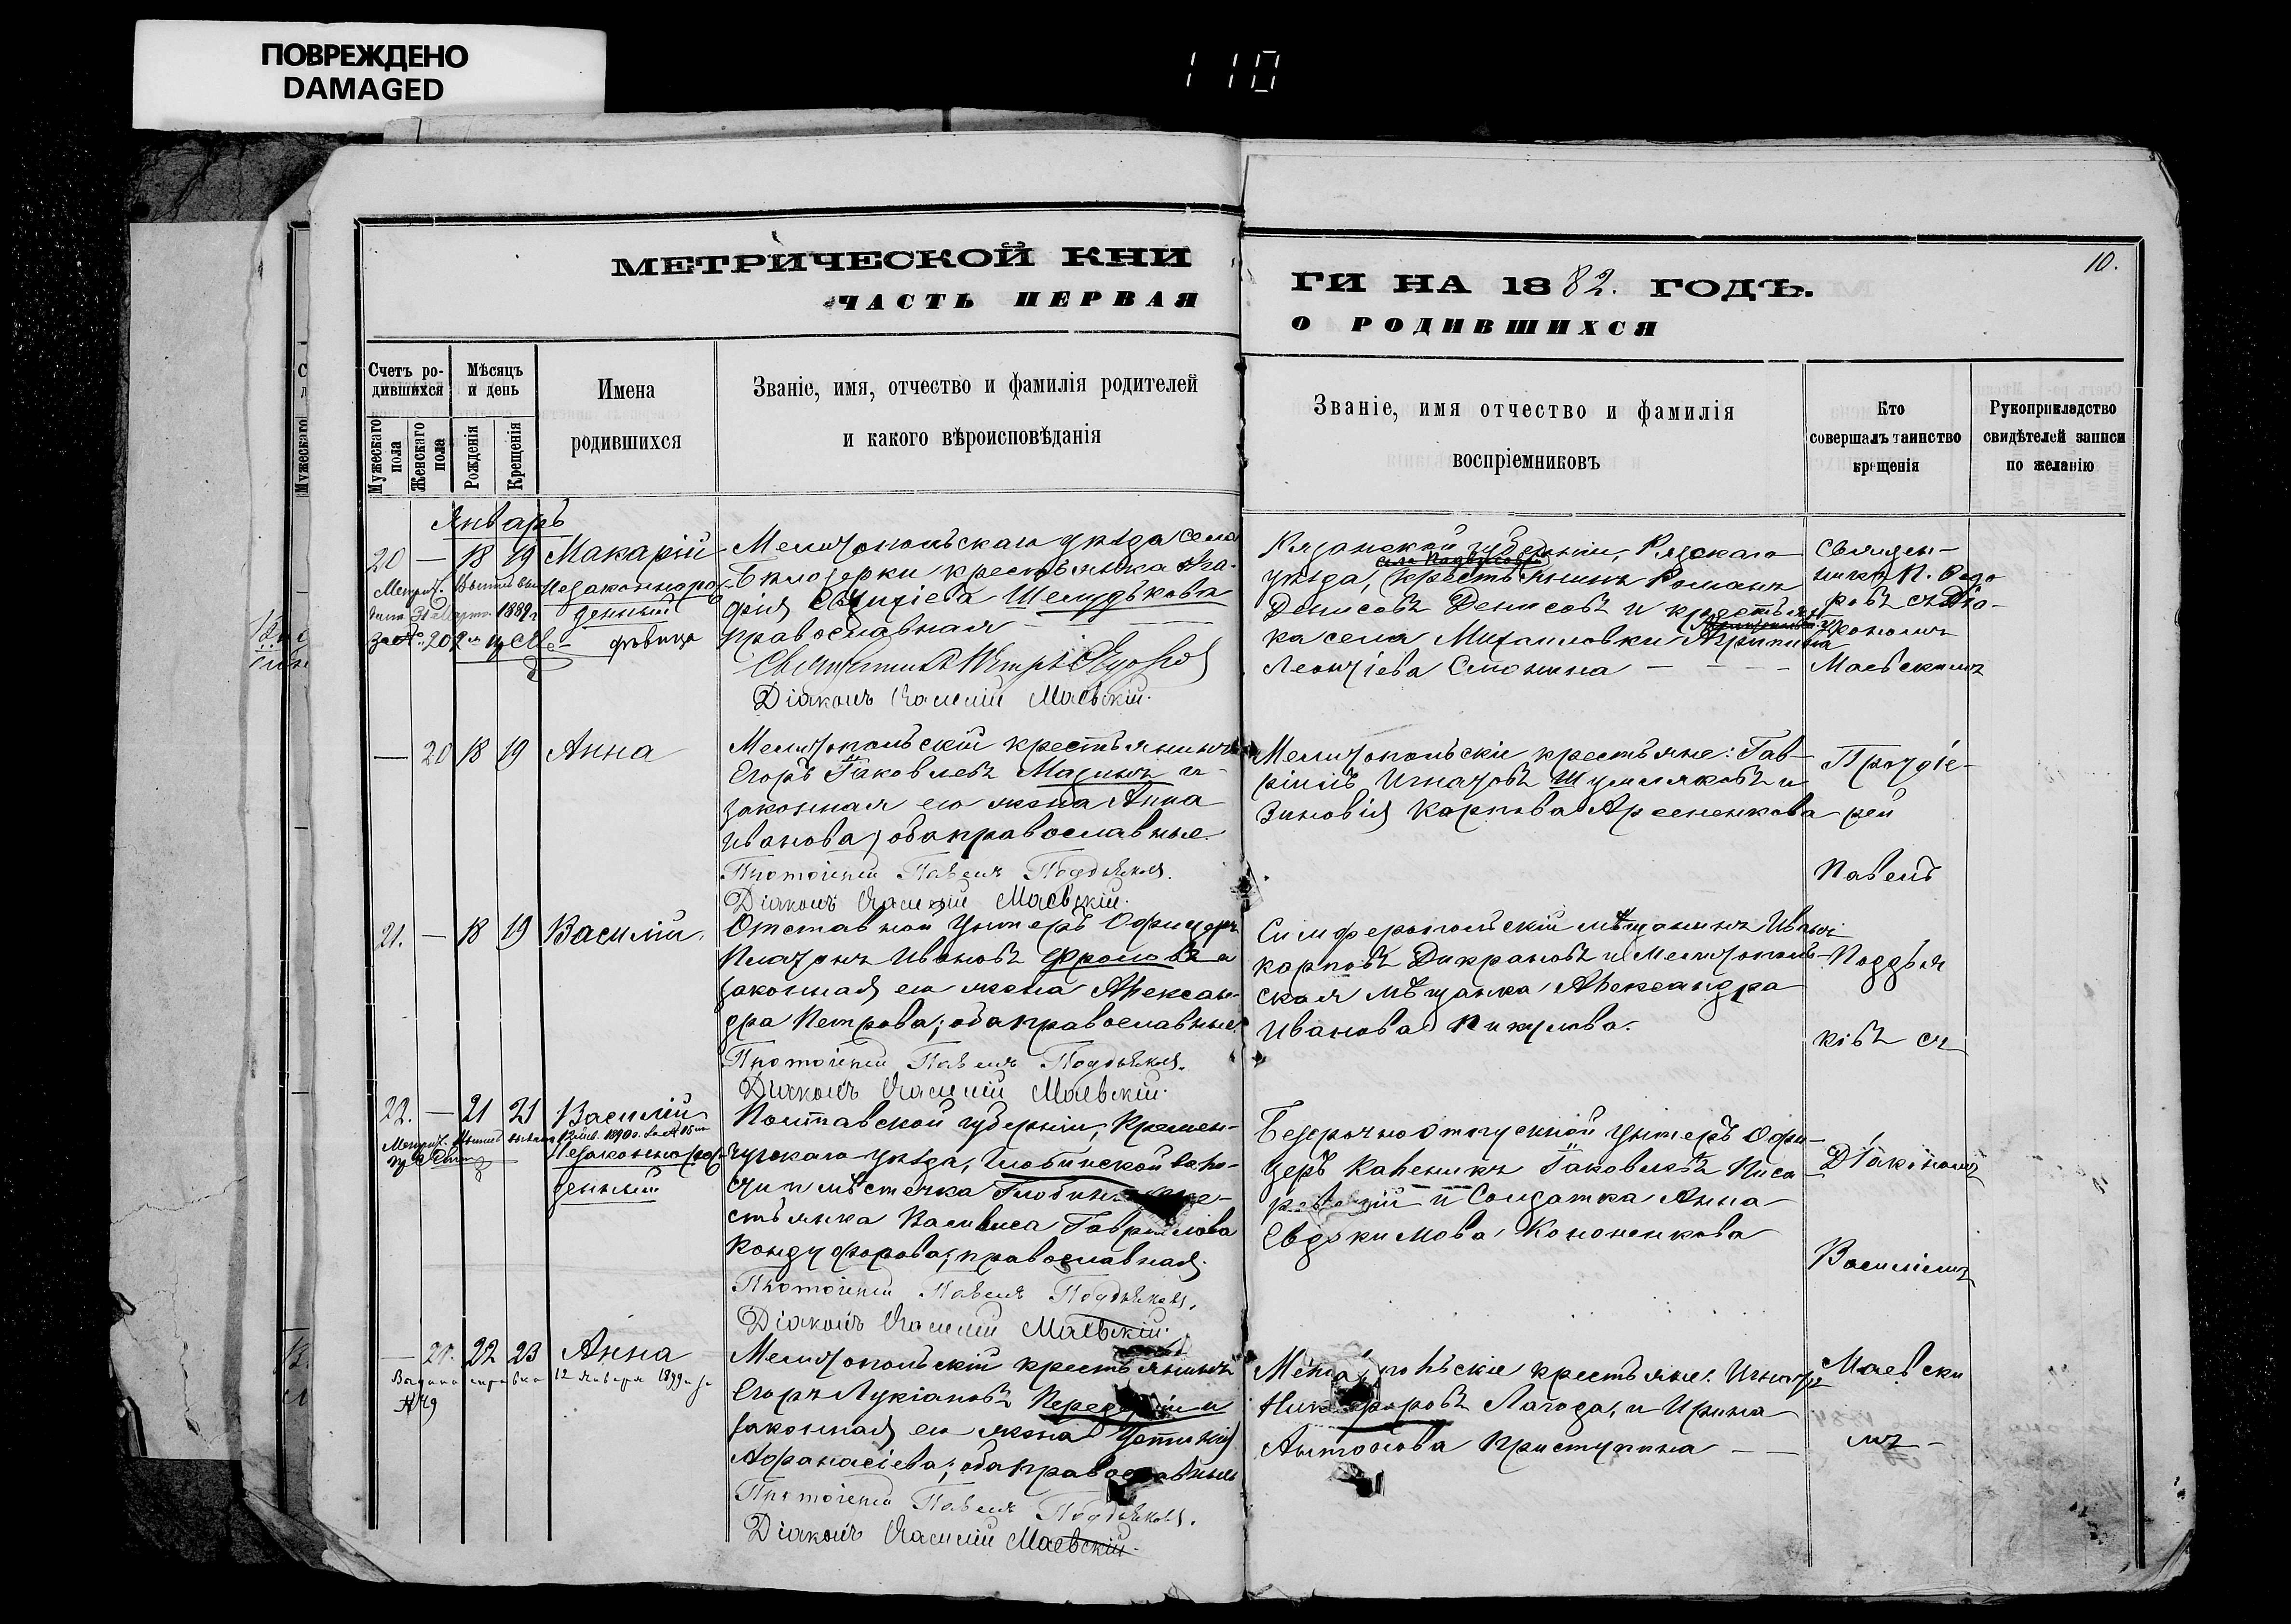 ПОВРЕЖДЕНО
DAMAGED
110
10.
МЕТРИЧЕСКОЙ КНИ
ЧАСТЬ ПЕРВАЯ
ГИ НА 1882. ГОДЪ.
О РОДИВШИХСЯ
Счетъ ро-
дившихся
Мужескаго пола
Женскаго пола
Мѣсяцъ
и день
Рожденія
Крещенія
Имена
родившихся
Званіе, имя, отчество и фамилія родителей
и какого вѣроисповѣданія
Званіе, имя отчество и фамилія
воспріемниковъ
Кто
совершалъ таинство
крещенія
Рукоприкладство
свидѣтелей записи
по желанію
Январь
20 — 18 19 Макарій
Незаконнорож-
денный
Мелитопольскаго уѣзда села
Бѣлозерки крестьянка
Шелудькова
православная
Діаконъ Василій Маевскій.
Рязанской губерніи, Ряжскаго
уѣзда, крестьянинъ Романъ
Денисовъ Денисовъ и крестьян-
ка села Михайловки Агрипина
Леонтіева
Священ-
никъ П. Ѳедо
ровъ съ Діа-
кономъ
Маевскимъ
— 20 18 19 Анна
Мелитопольскій крестьянинъ
Егоръ Іаковлевъ Мазинъ и
законная его жена Анна
Иванова; оба православные.
Протоіерей Павелъ Поддьяковъ.
Діаконъ Василій Маевскій.
Мелитопольскіе крестьяне: Гав-
ріилъ Игнатовъ Шумляковъ и
Зиновія Карпова Арсененкова
Протоіе-
рей
Павелъ
21. — 18 19 Василій.
Отставной Унтеръ Офицеръ
Платонъ Ивановъ Фроловъ и
законная его жена Алексан-
дра Петрова; оба православные.
Протоіерей Павелъ Поддьяковъ.
Діаконъ Василій Маевскій.
Симферопольскій мѣщанинъ Иванъ
Карповъ Дикрановъ и Мелитополь-
ская мѣщанка Александра
Иванова Пикулова.
Поддья
ковъ съ
22. — 21 21 Василій
Незаконнорож-
денный
Полтавской губерніи, Кремен-
чугскаго уѣзда, Глобинской воло-
сти мѣстечка Глобина кре-
стьянка Василиса Гавриилова
Кондуфорова; православная.
Протоіерей Павелъ Поддьяковъ.
Діаконъ Василій Маевскій.
Безсрочноотпускной Унтеръ Офи-
церъ Каленикъ Іаковлевъ Писа
и Солдатка Анна
Евдокимова Кононенкова
Діакономъ
Василіемъ
— 21. 22 23 Анна
Выдана справка 12 Января 1899 г за
№ 49
Мелитопольскій крестьянинъ
Егоръ Лукіановъ
законная его жена Устинія
Аѳанасіева; оба православные
Протоіерей Павелъ Поддьяковъ.
Діаконъ Василій Маевскій.
Мелитопольскіе крестьяне: Игнатъ
Никифоровъ Лагода, и Ирина
Антонова Приступина
Маевски
мъ